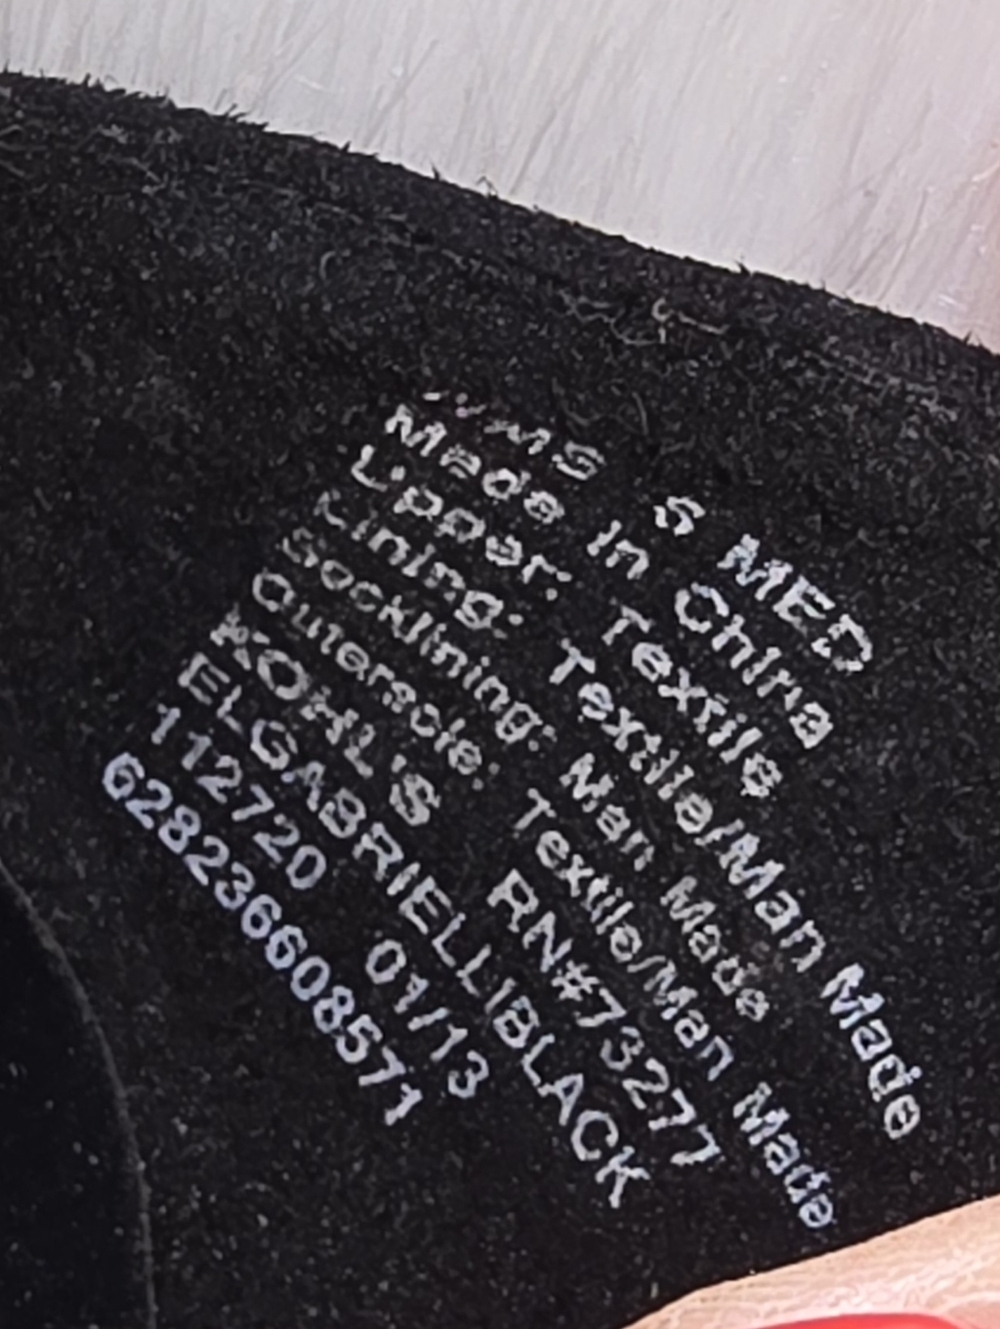 WMS 6 MED
Made in China
Upper: Textile
Lining: Textile/Man Made
Socklining: Man Made
Outersole: Textile/Man Made
KOHL'S RN#73277
ELGABRIELLIBLACK
112720 01/13
628236608571